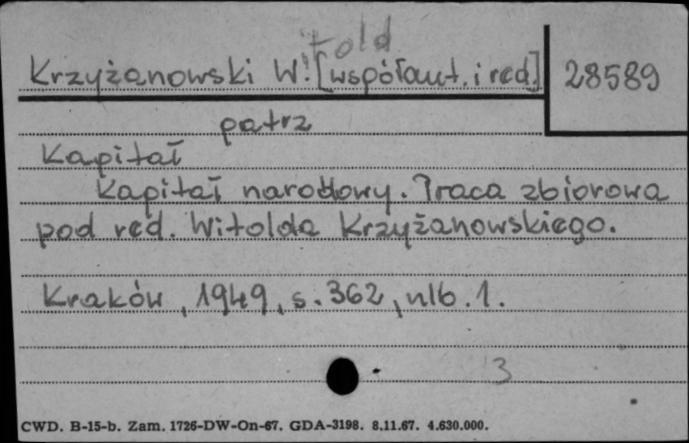 itold
Krzyżanowski W. [współaut. i red.] 28589
patrz
Kapitał
Kapitał narodowy. Praca zbiorowa
pod red. Witolda Krzyżanowskiego.
Kraków, 1949, s. 362, nlb. 1.
3
CWD. B-15-b. Zam. 1726-DW-On-67. GDA-3198. 8.11.67. 4.630.000.